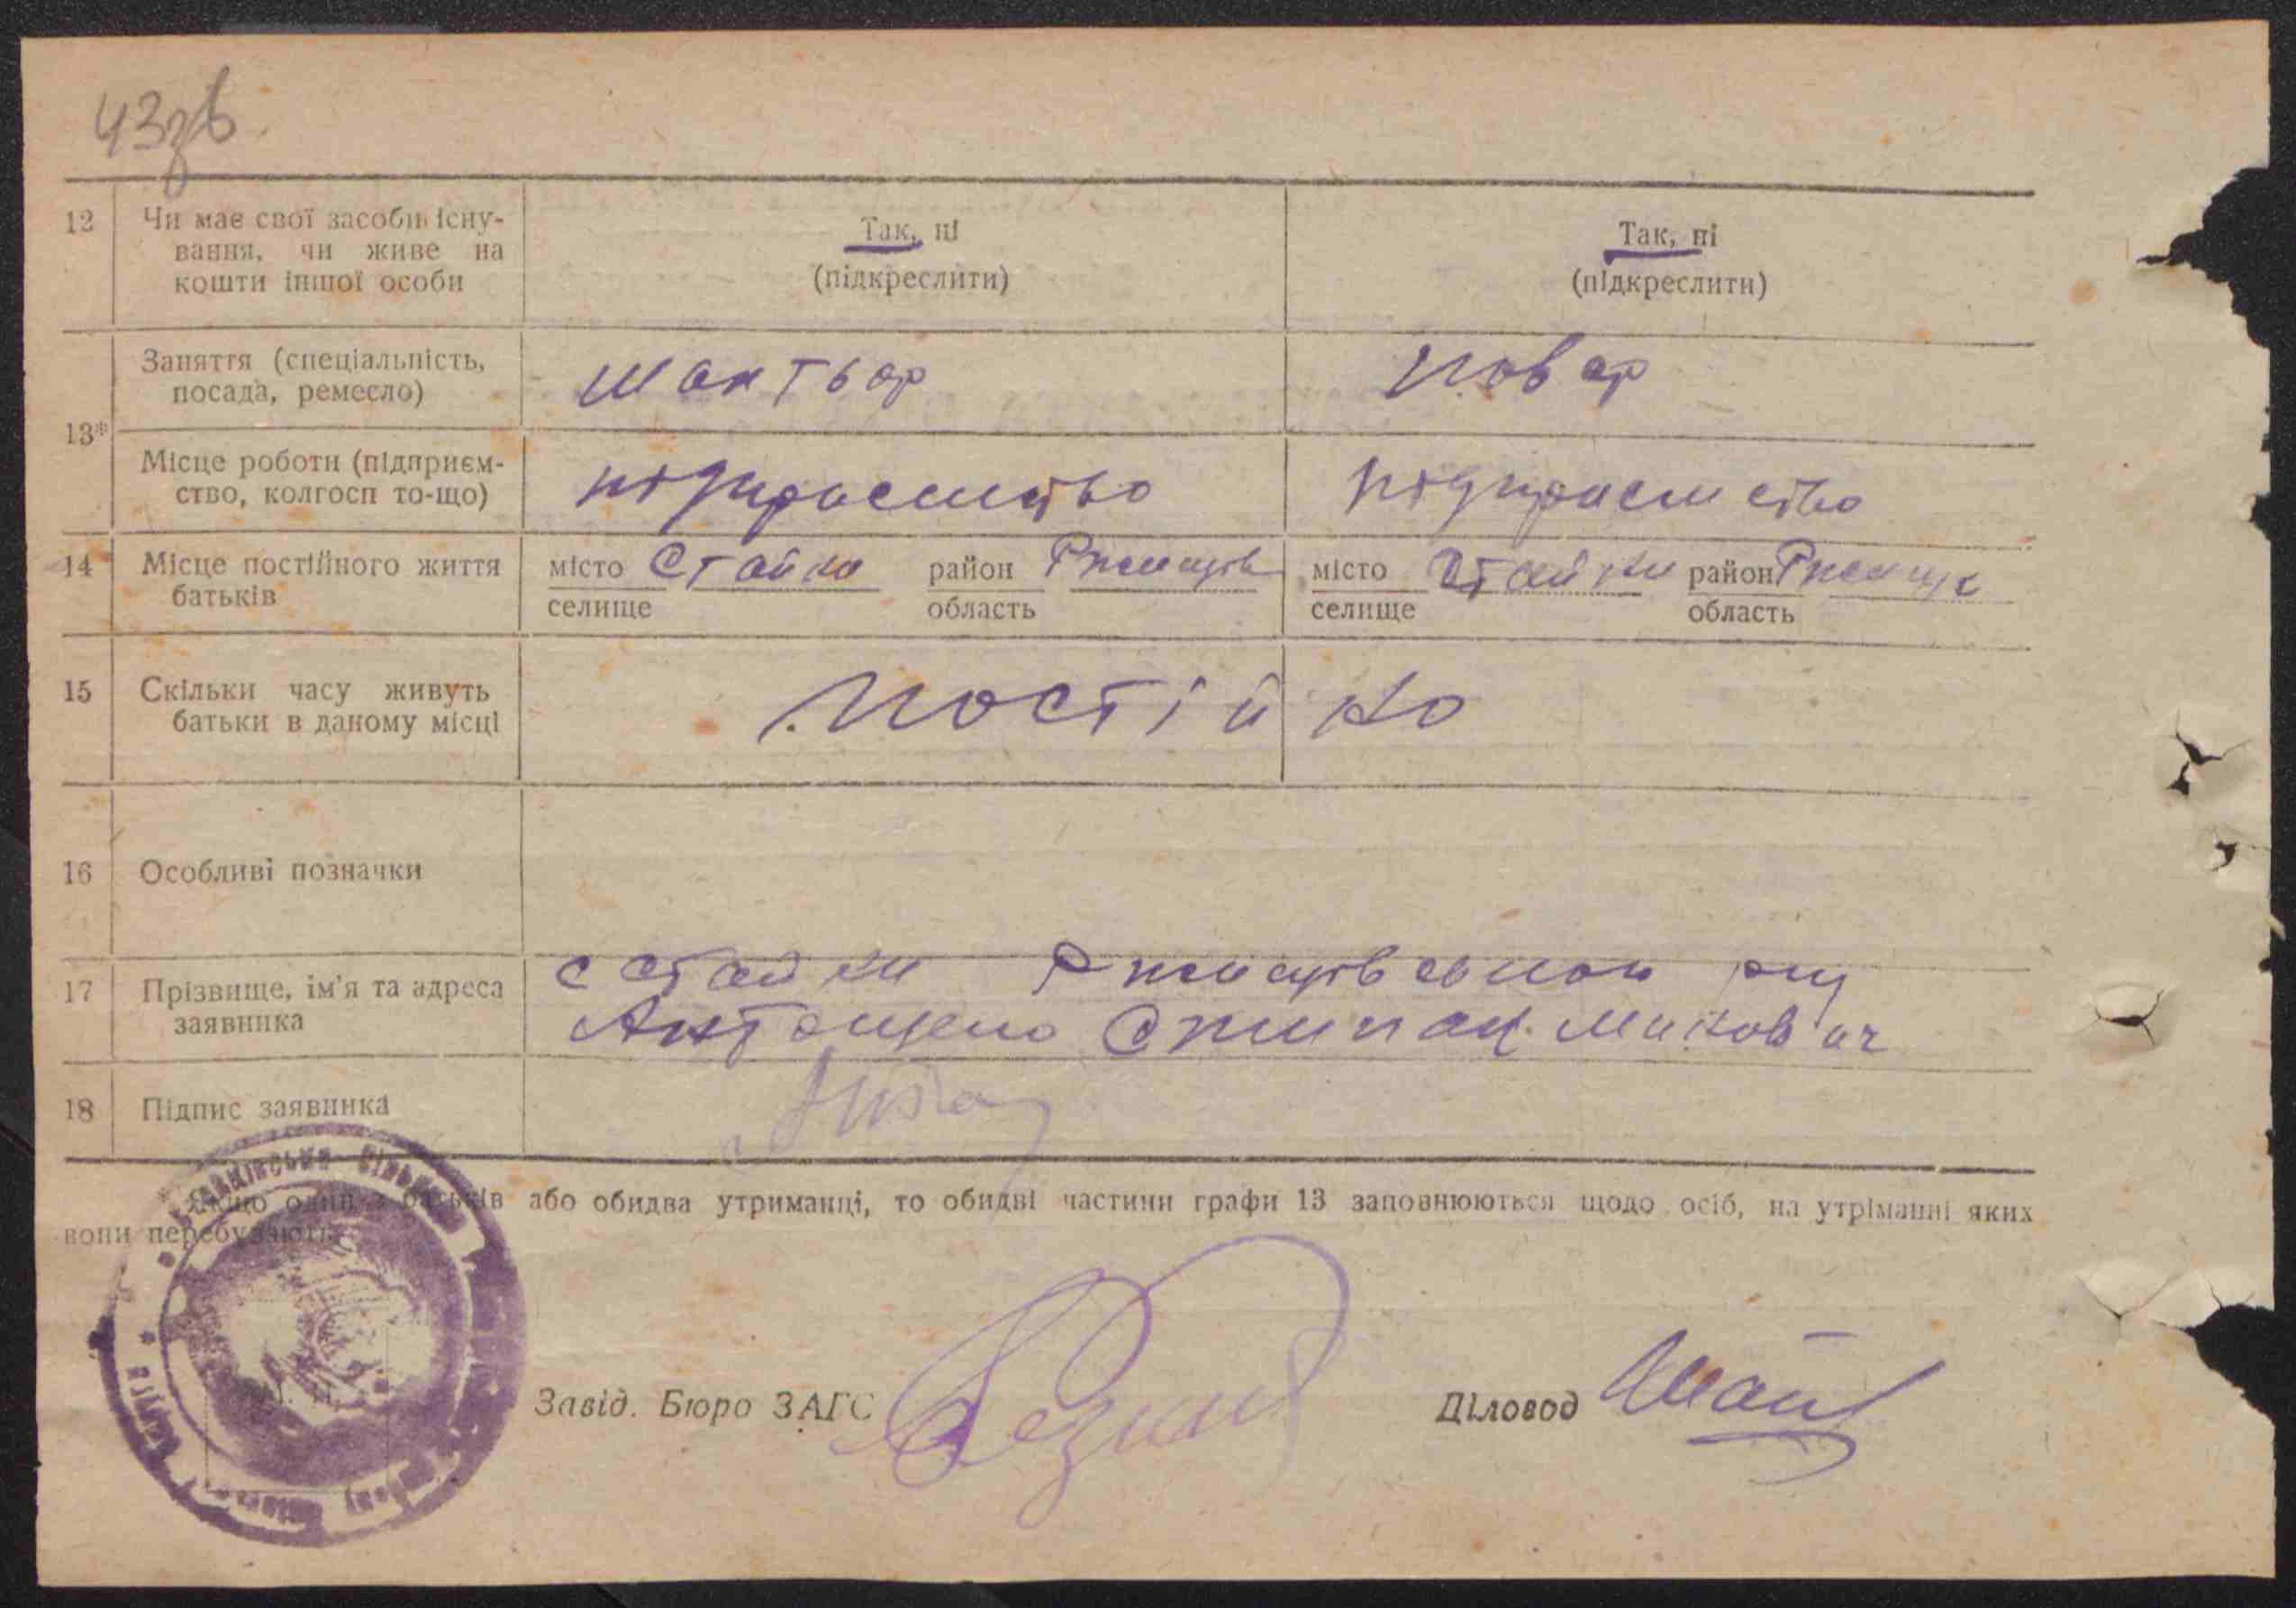 43зв
12 Чи має свої засоби існу-
вання, чи живе на
кошти іншої особи
Так, ні
(підкреслити)
Так, ні
(підкреслити)
13*
Заняття (спеціальність,
посада, ремесло)
повар
Місце роботи (підприєм-
ство, колгосп то-що)
підприємство
підприємство
14 Місце постійного життя
батьків
місто Стайки район Ржищів
селище область
місто Стайки район Ржищів
селище область
15 Скільки часу живуть
батьки в даному місці
постійно
16 Особливі позначки
17 Прізвище, ім'я та адреса
заявника
с Стайки
18 Підпис заявника
Якщо один з батьків або обидва утриманці, то обидві частини графи 13 заповнюються щодо осіб, на утріманні яких
вони перебувають.
Завід. Бюро ЗАГС
Діловод